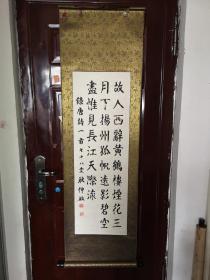 故人西辭黃鶴樓煙花三
月下揚州孤帆遠影碧空
盡惟見長江天際流
錄唐詩一首七十八叟